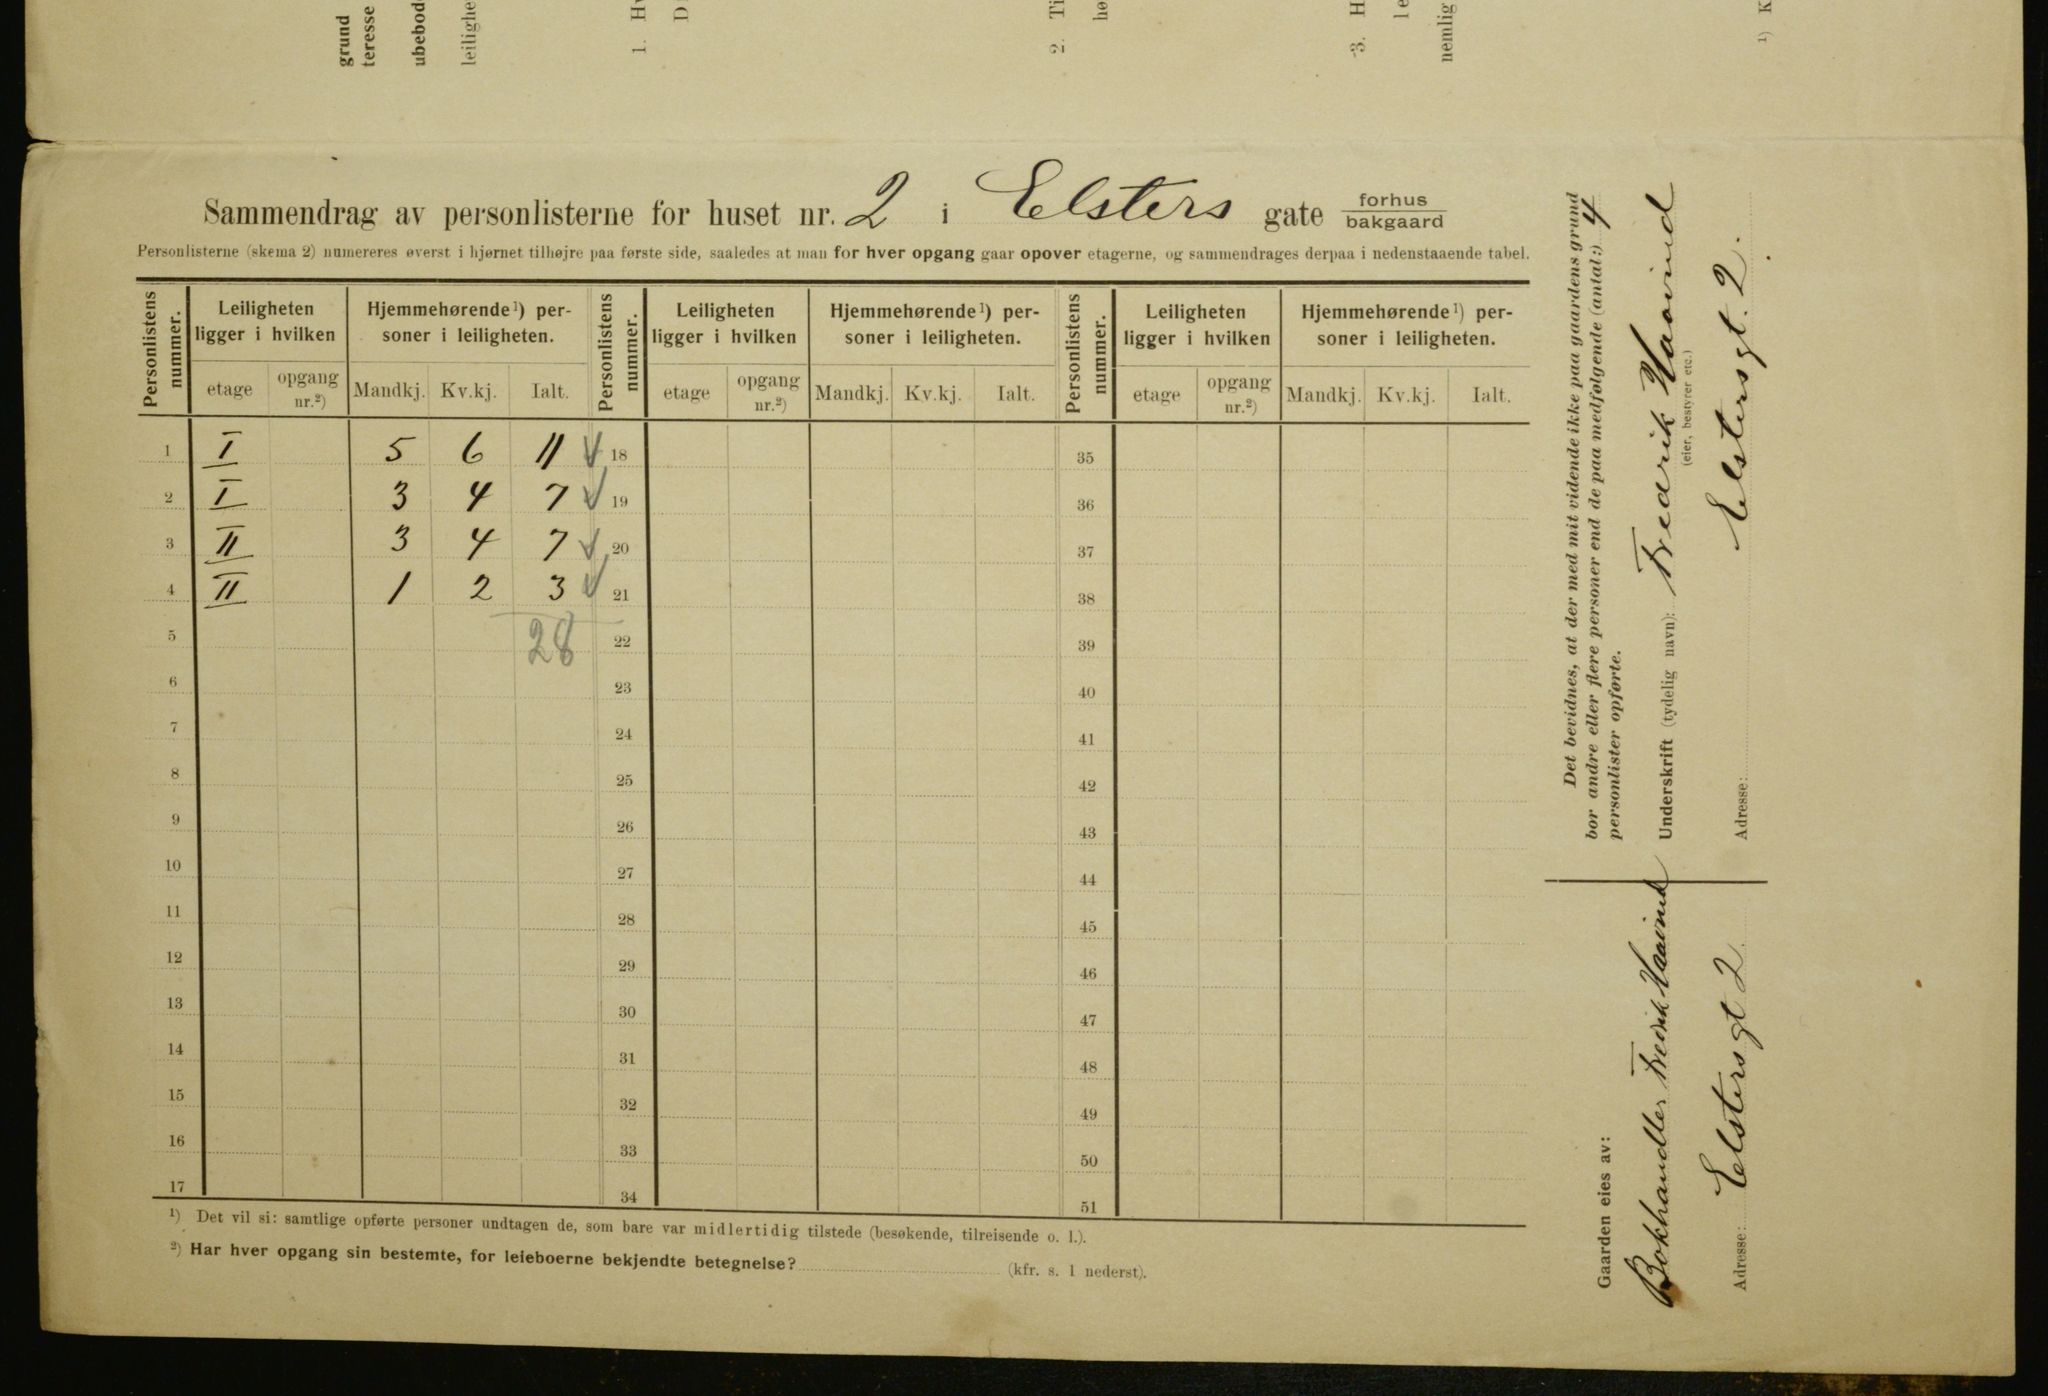 grund
teresse
ubebod
leilighe
1. Hv
D
2. Ti
hø
3. H
le
nemlig
¹) K
Sammendrag av personlisterne for huset nr. 2 i Elsters gate forhus
bakgaard
Personlisterne (skema 2) numereres øverst i hjørnet tilhøjre paa første side, saaledes at man for hver opgang gaar opover etagerne, og sammendrages derpaa i nedenstaaende tabel.
Personlistens nummer. Leiligheten ligger i hvilken Hjemmehørende¹) personer i leiligheten. Personlistens nummer. Leiligheten ligger i hvilken Hjemmehørende¹) personer i leiligheten. Personlistens nummer. Leiligheten ligger i hvilken Hjemmehørende¹) personer i leiligheten.
etage opgang nr.²) Mandkj. Kv.kj. Ialt. etage opgang nr.²) Mandkj. Kv.kj. Ialt. etage opgang nr.²) Mandkj. Kv.kj. Ialt.
1 I 5 6 11 18 35
2 I 3 4 7 19 36
3 II 3 4 7 20 37
4 II 1 2 3 21 38
5 28 22 39
6 23 40
7 24 41
8 25 42
9 26 43
10 27 44
11 28 45
12 29 46
13 30 47
14 31 48
15 32 49
16 33 50
17 34 51
¹) Det vil si: samtlige opførte personer undtagen de, som bare var midlertidig tilstede (besøkende, tilreisende o. l.).
²) Har hver opgang sin bestemte, for leieboerne bekjendte betegnelse? (kfr. s. 1 nederst).
Det bevidnes, at der med mit vidende ikke paa gaardens grund
bor andre eller flere personer end de paa medfølgende (antal:) 4
personlister opførte.
Underskrift (tydelig navn): Fredrik Haavind
(eier, bestyrer etc.)
Adresse: Elstersgt. 2.
Gaarden eies av:
Bokhandler Fredrik Haavind
Adresse: Elstersgt 2